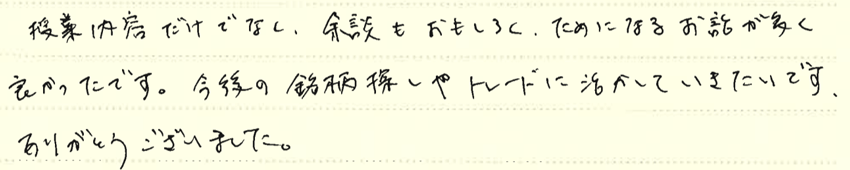 授業内容だけでなく、余談もおもしろく、ためになるお話が多く
良かったです。今後の銘柄探しやトレードに活かしていきたいです。
ありがとうございました。